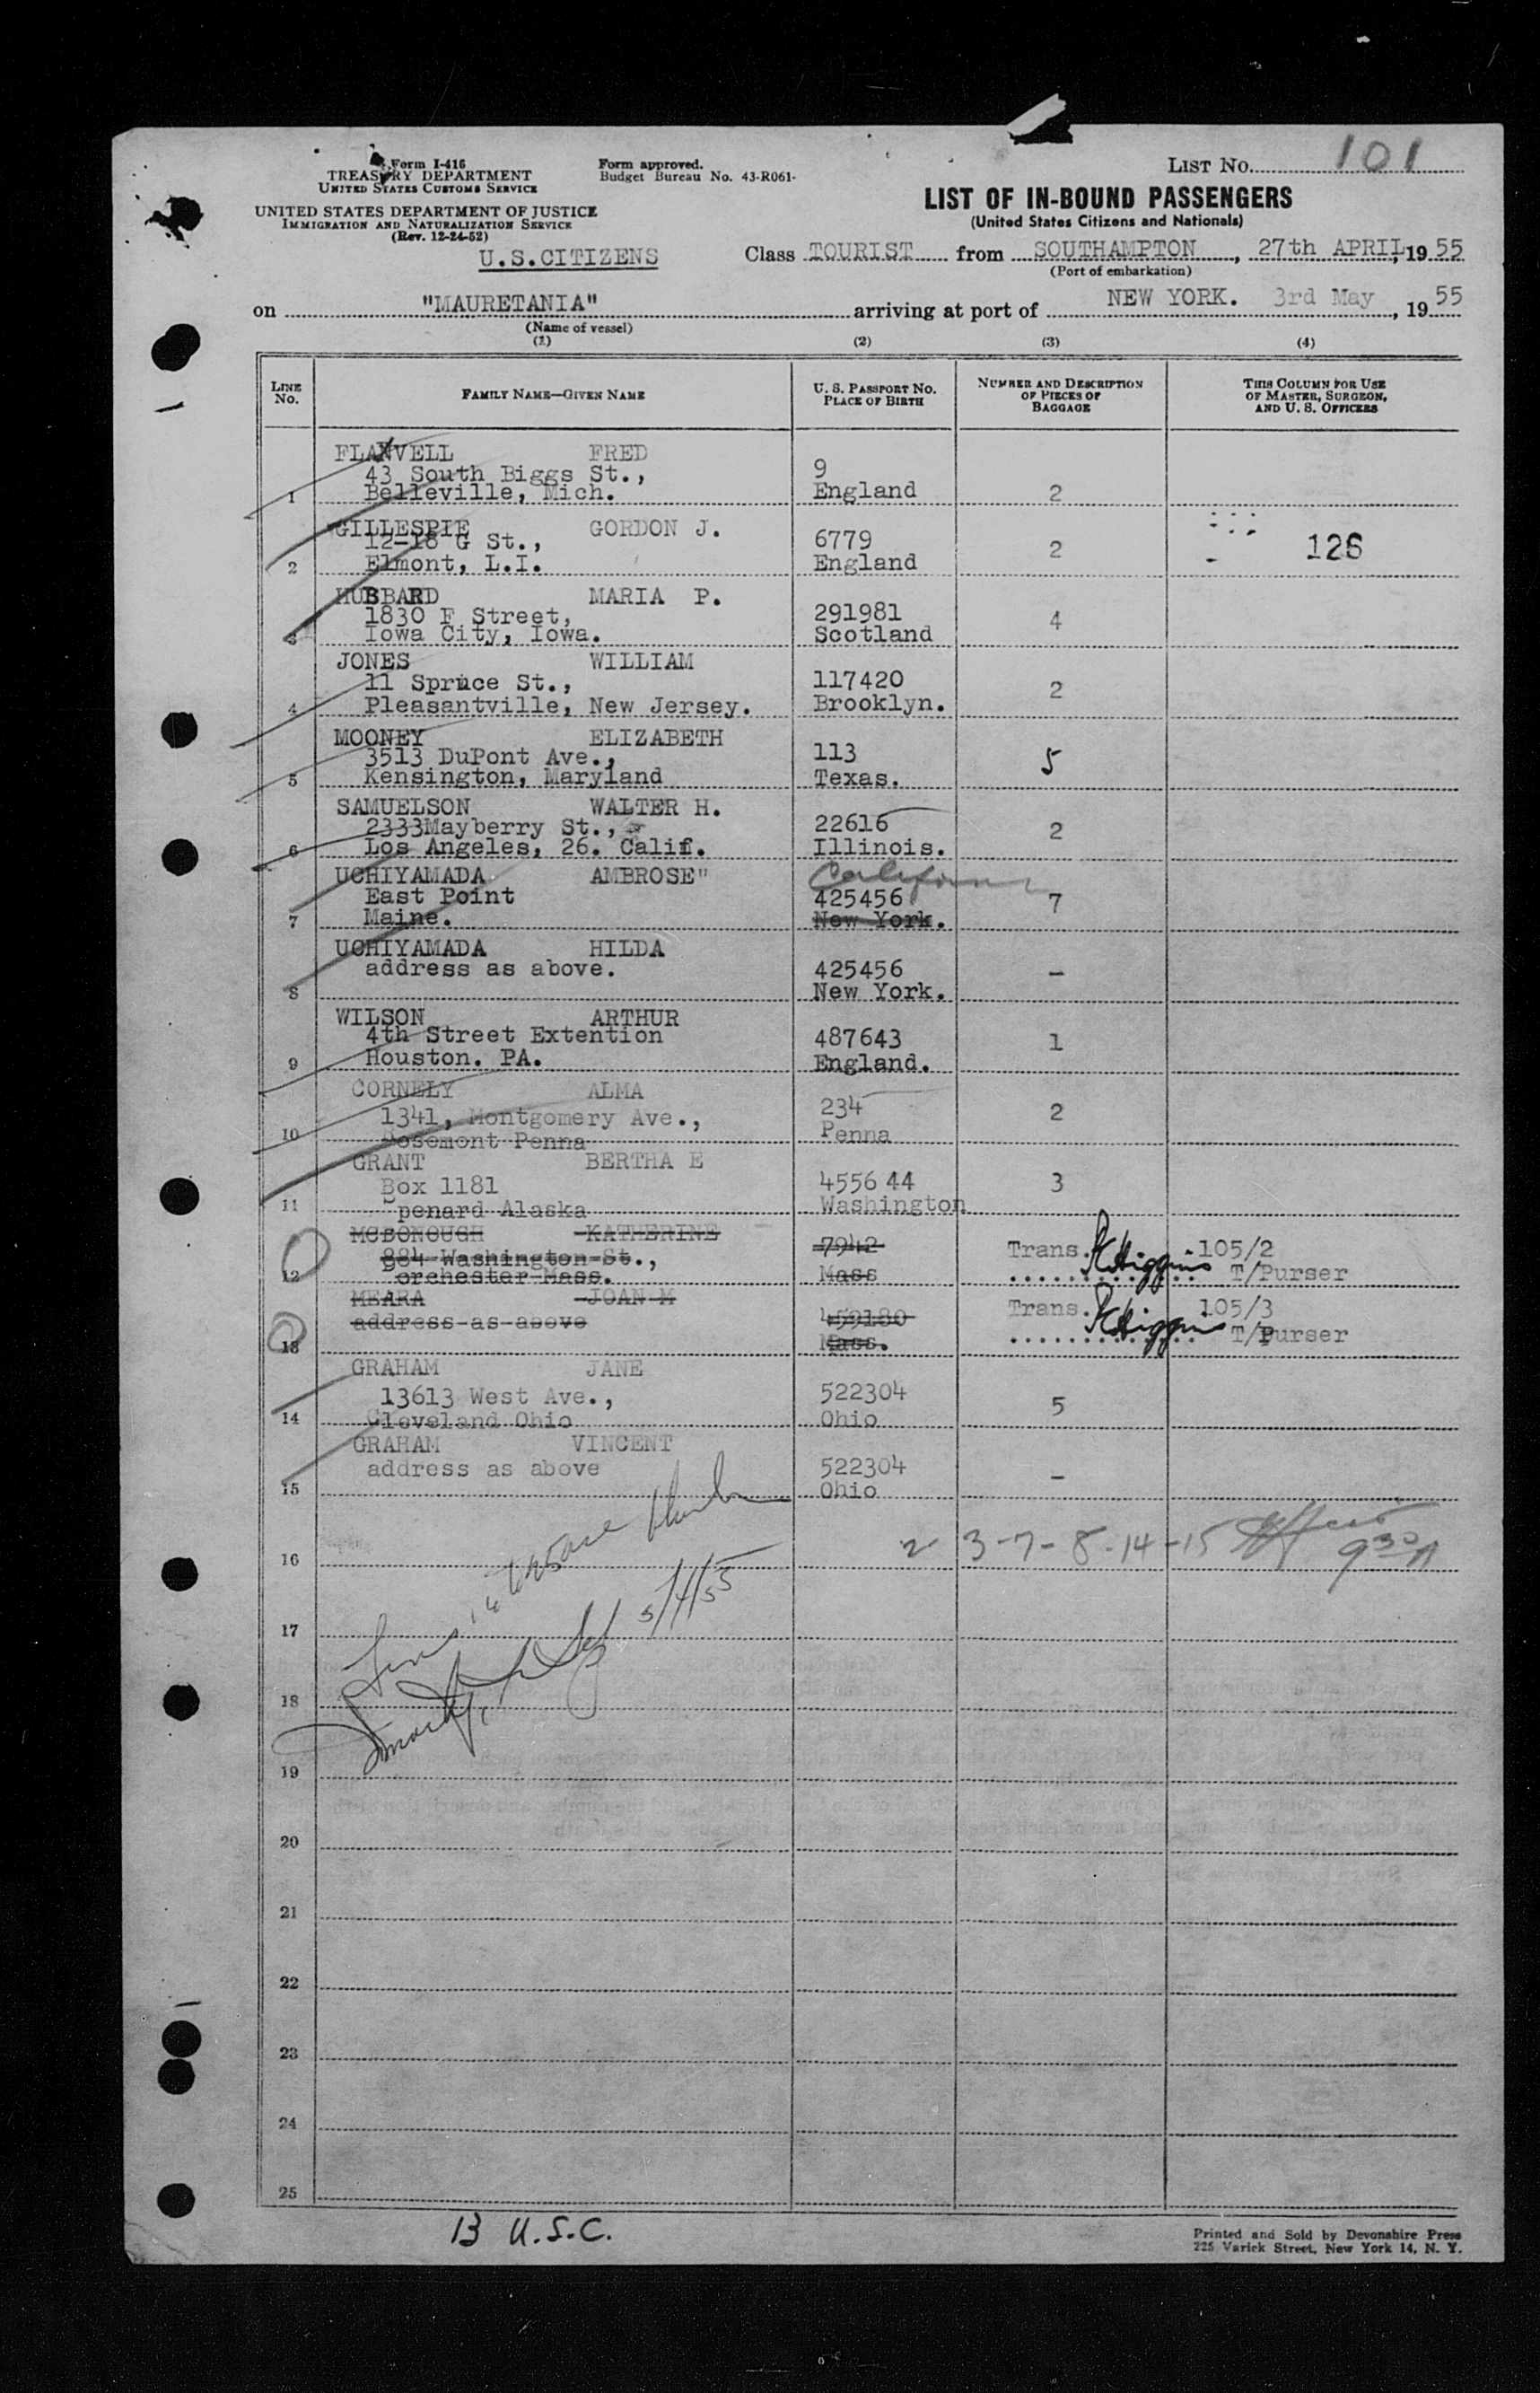 LIST No. 101
Form I-416
TREASURY DEPARTMENT
UNITED STATES CUSTOMS SERVICE
Form approved.
Budget Bureau No. 43-R061-
UNITED STATES DEPARTMENT OF JUSTICE
IMMIGRATION AND NATURALIZATION SERVICE
(Rev. 12-24-52)
LIST OF IN-BOUND PASSENGERS
(United States Citizens and Nationals)
U.S.CITIZENS
Class TOURIST from SOUTHAMPTON, 27th APRIL, 19 55
(Port of embarkation)
on "MAURETANIA" arriving at port of NEW YORK. 3rd May, 19 55
(Name of vessel)
(1) (2) (3) (4)
LINE No.
FAMILY NAME—GIVEN NAME
U. S. PASSPORT NO.
PLACE OF BIRTH
NUMBER AND DESCRIPTION
OF PIECES OF
BAGGAGE
THIS COLUMN FOR USE
OF MASTER, SURGEON,
AND U. S. OFFICERS
FLAVELL FRED
43 South Biggs St., 9
1 Belleville, Mich. England 2
GILLESPIE GORDON J.
12-18 G St., 6779 126
2 Elmont, L.I. England 2
HUBBARD MARIA P.
1830 F Street, 291981
3 Iowa City, Iowa. Scotland 4
JONES WILLIAM
11 Spruce St., 117420
4 Pleasantville, New Jersey. Brooklyn. 2
MOONEY ELIZABETH
3513 DuPont Ave., 113
5 Kensington, Maryland Texas. 5
SAMUELSON WALTER H.
2333Mayberry St., 22616
6 Los Angeles, 26. Calif. Illinois. 2
UCHIYAMADA AMBROSE" California
East Point 425456
7 Maine. New York. 7
UCHIYAMADA HILDA
address as above. 425456
8 New York. -
WILSON ARTHUR
4th Street Extention 487643
9 Houston. PA. England. 1
CORNELY ALMA
1341, Montgomery Ave., 234
10 Rosemont Penna Penna 2
GRANT BERTHA E
Box 1181 4556 44
11 Spenard Alaska Washington 3
MCDONOUGH KATHERINE
884 Washington St., 7942 Trans. KHiggins 105/2
12 orchester Mass. Mass T/Purser
MEARA JOAN M
address as above 459180 Trans. KHiggins 105/3
13 Mass. T/Purser
GRAHAM JANE
13613 West Ave., 522304
14 Cleveland Ohio Ohio 5
GRAHAM VINCENT
address as above 522304
15 Ohio -
16 2 3-7-8-14-15 9 30 A
5/4/55
17
18
19
20
21
22
23
24
25
13 U.S.C.
Printed and Sold by Devonshire Press
225 Varick Street, New York 14, N. Y.